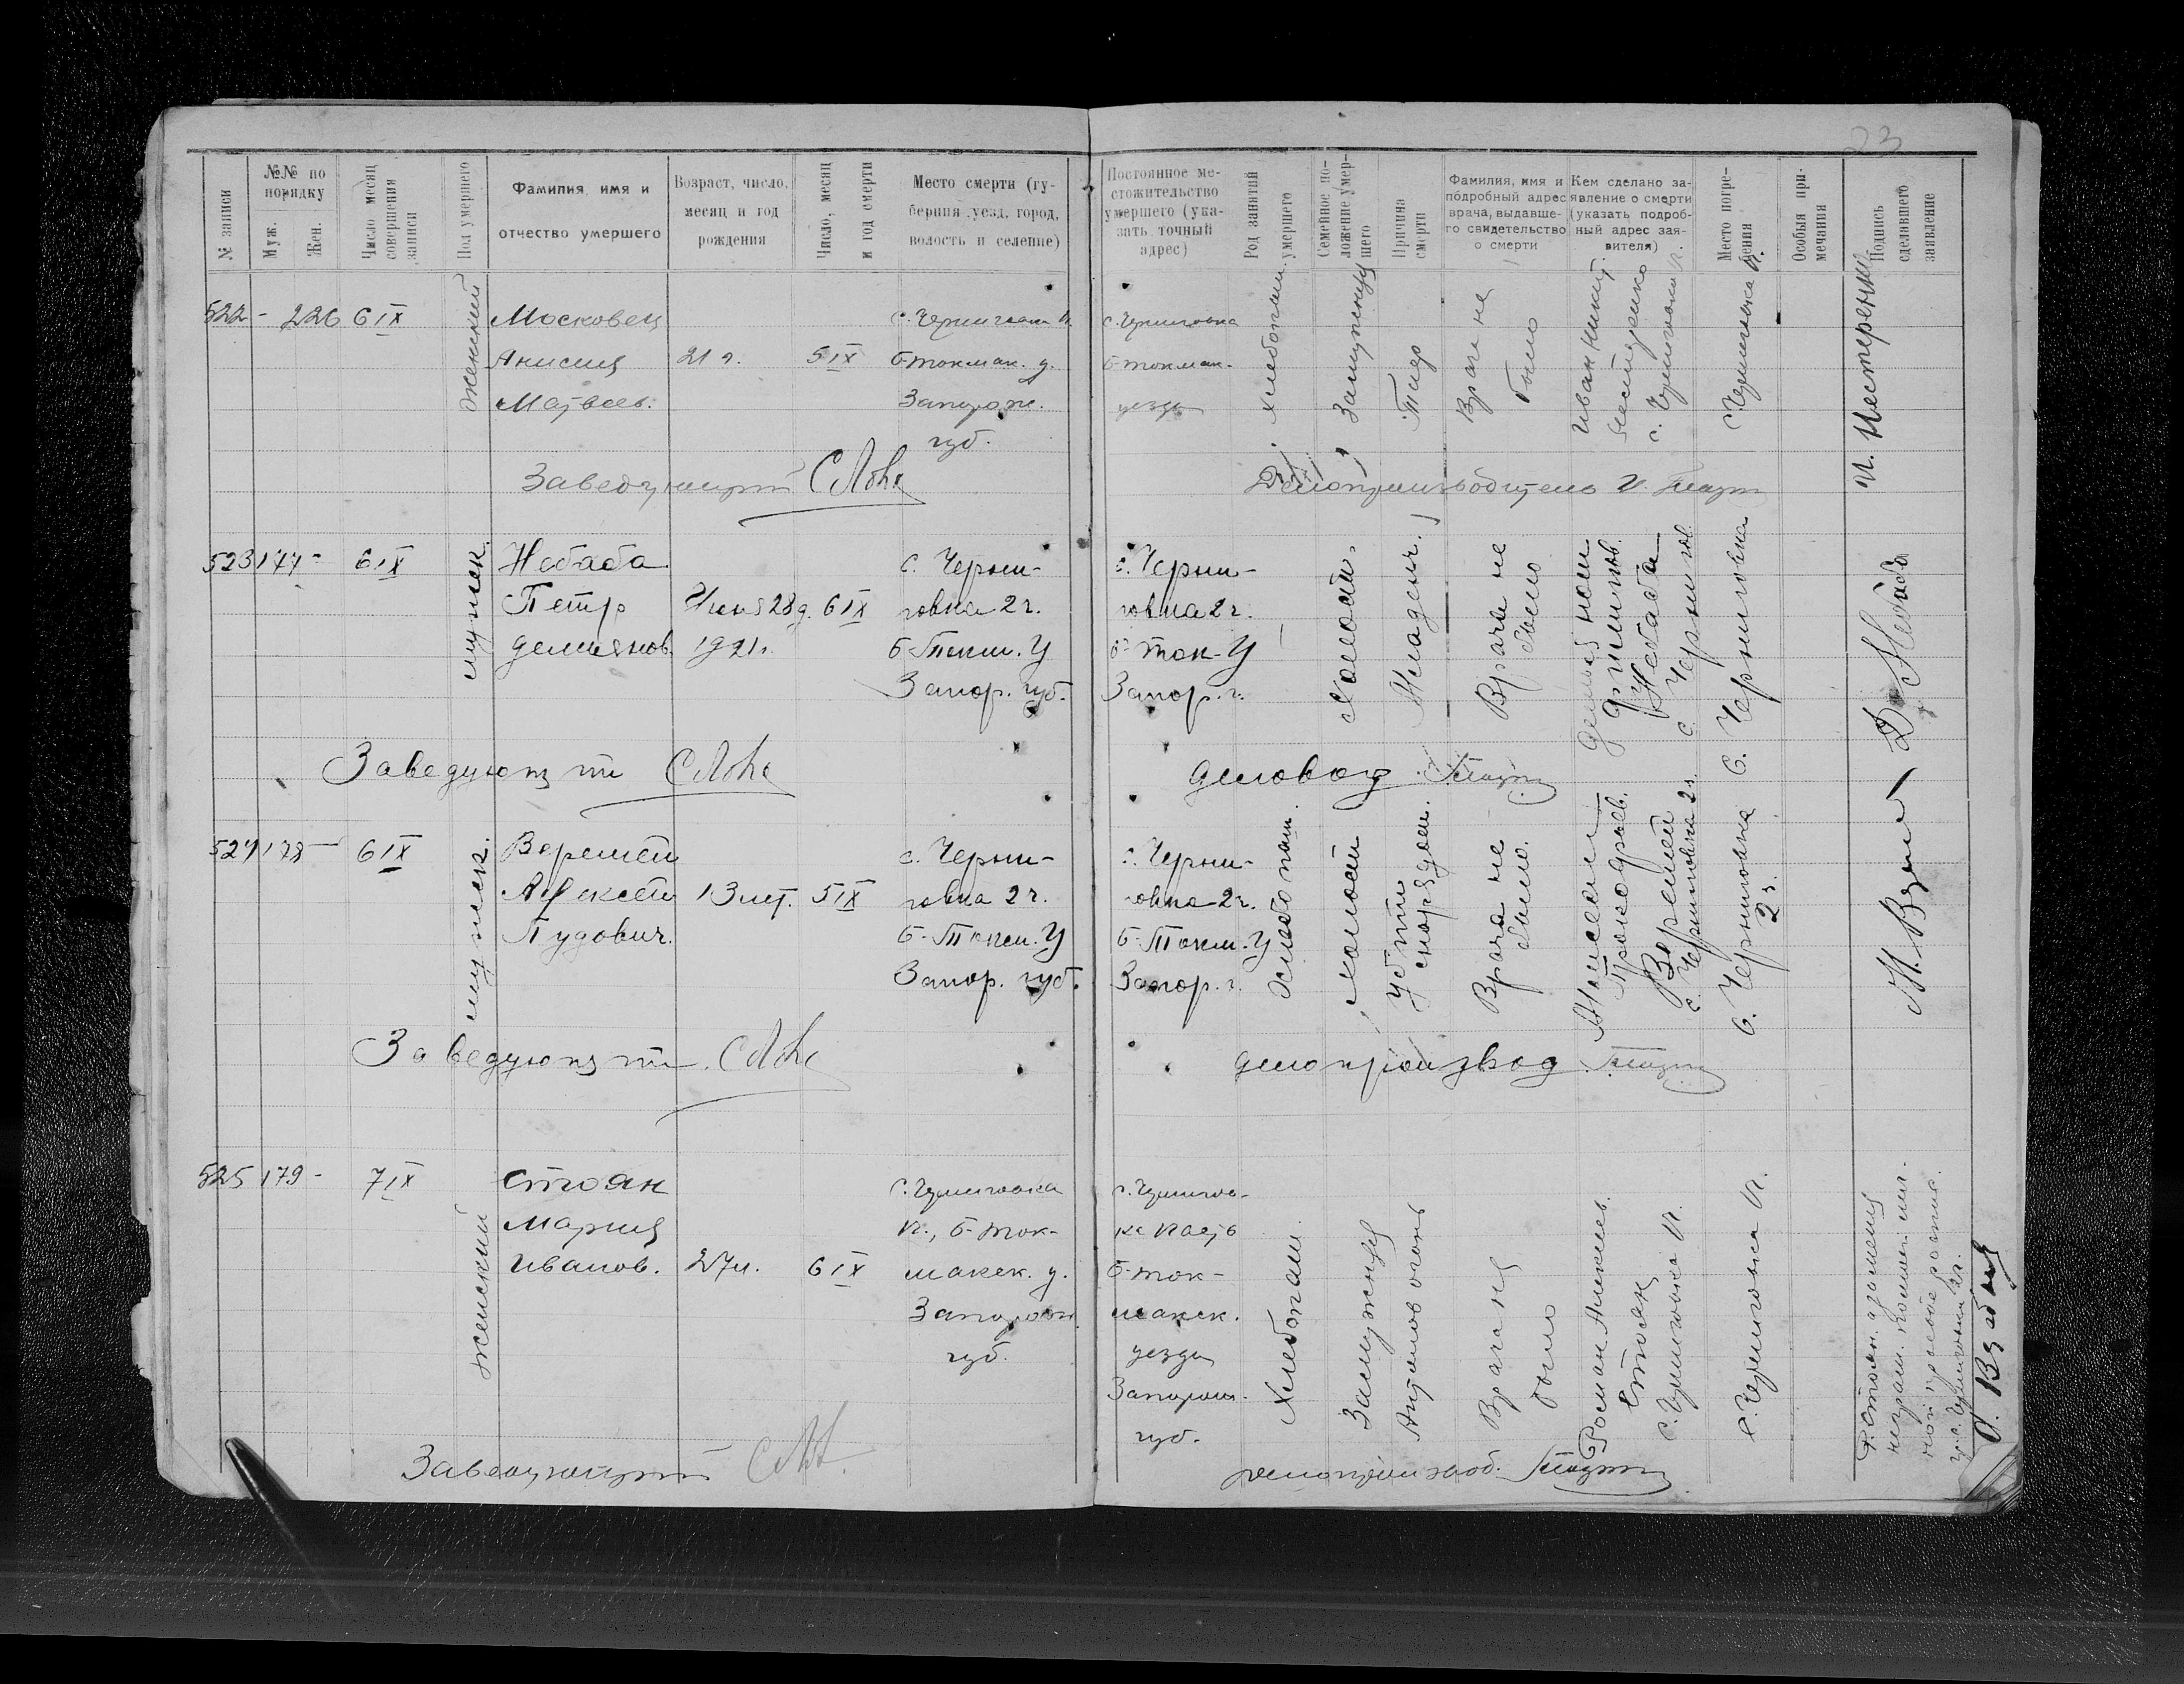 23
№ записи
№№ по порядку
Муж.
Жен.
Число месяц совершения записи
Пол умершего
Фамилия, имя и отчество умершего
Возраст, число, месяц и год рождения
Число, месяц и год смерти
Место смерти (губерния, уезд, город, волость и селение)
Постоянное местожительство умершего (указать точный адрес)
Род занятий умершего
Семейное положение умершего
Причина смерти
Фамилия, имя и подробный адрес врача, выдавшего свидетельство о смерти
Кем сделано заявление о смерти (указать подробный адрес заявителя)
Место погребения
Особыя примечания
Подпись сделавшего заявление
522 - 226 6 IX
женский
Московец
Анисия
Матвеев.
21 г.
5 IX
с. Черниговка
б-токмак. у.
Запорож.
губ.
с. Черниговка
б-токмак.
уезда
хлебопаш.
Замужняя
Тиф
Врача не
было
Иван Никит.
Нестеренко
с. Черниговка
с. Черниговка
И. Нестеренко
Заведующий
Делопроизводитель
523 177 - 6 IX
мужск.
Небаба
Петр
Демьянов.
Июня 28 д.
1921 г.
6 IX
с. Черни-
говка 2 г.
б-Токм. У
Запор. губ.
с. Черни-
говка 2 г.
б-Ток-У
Запор. г.
Холост
Младенч.
Врача не
было
Небаба
с. Чернигов.
с. Черниговка
Д Небаба
Заведующий
деловод
524 178 - 6 IX
мужск.
Веремей
Алексей
Пудович.
13 лет.
5 IX
с. Черни-
говка 2 г.
б-Токм. У
Запор. губ.
с. Черни-
говка 2 г.
б-Токм. У
Запор. г.
хлебопаш.
холост
убит
снарядом.
Врача не
было.
Веремей
с. Черниговка 2 г.
с. Черниговка
2 г.
Заведующий
делопроизвод
525 179 - 7 IX
женский
Стоян
Мария
Иванов.
27 л.
6 IX
с. Черниговка
б-ток-
макск. у.
Запорож.
губ.
с. Чернигов-
ка
б-ток-
макск.
уезда
Запорож.
губ.
Хлебопаш.
Замужняя
Антонов огонь
Врача не
было
Роман Алексеев.
Стоян
с. Черниговка
с. Черниговка
Заведующий
делопроизвод.